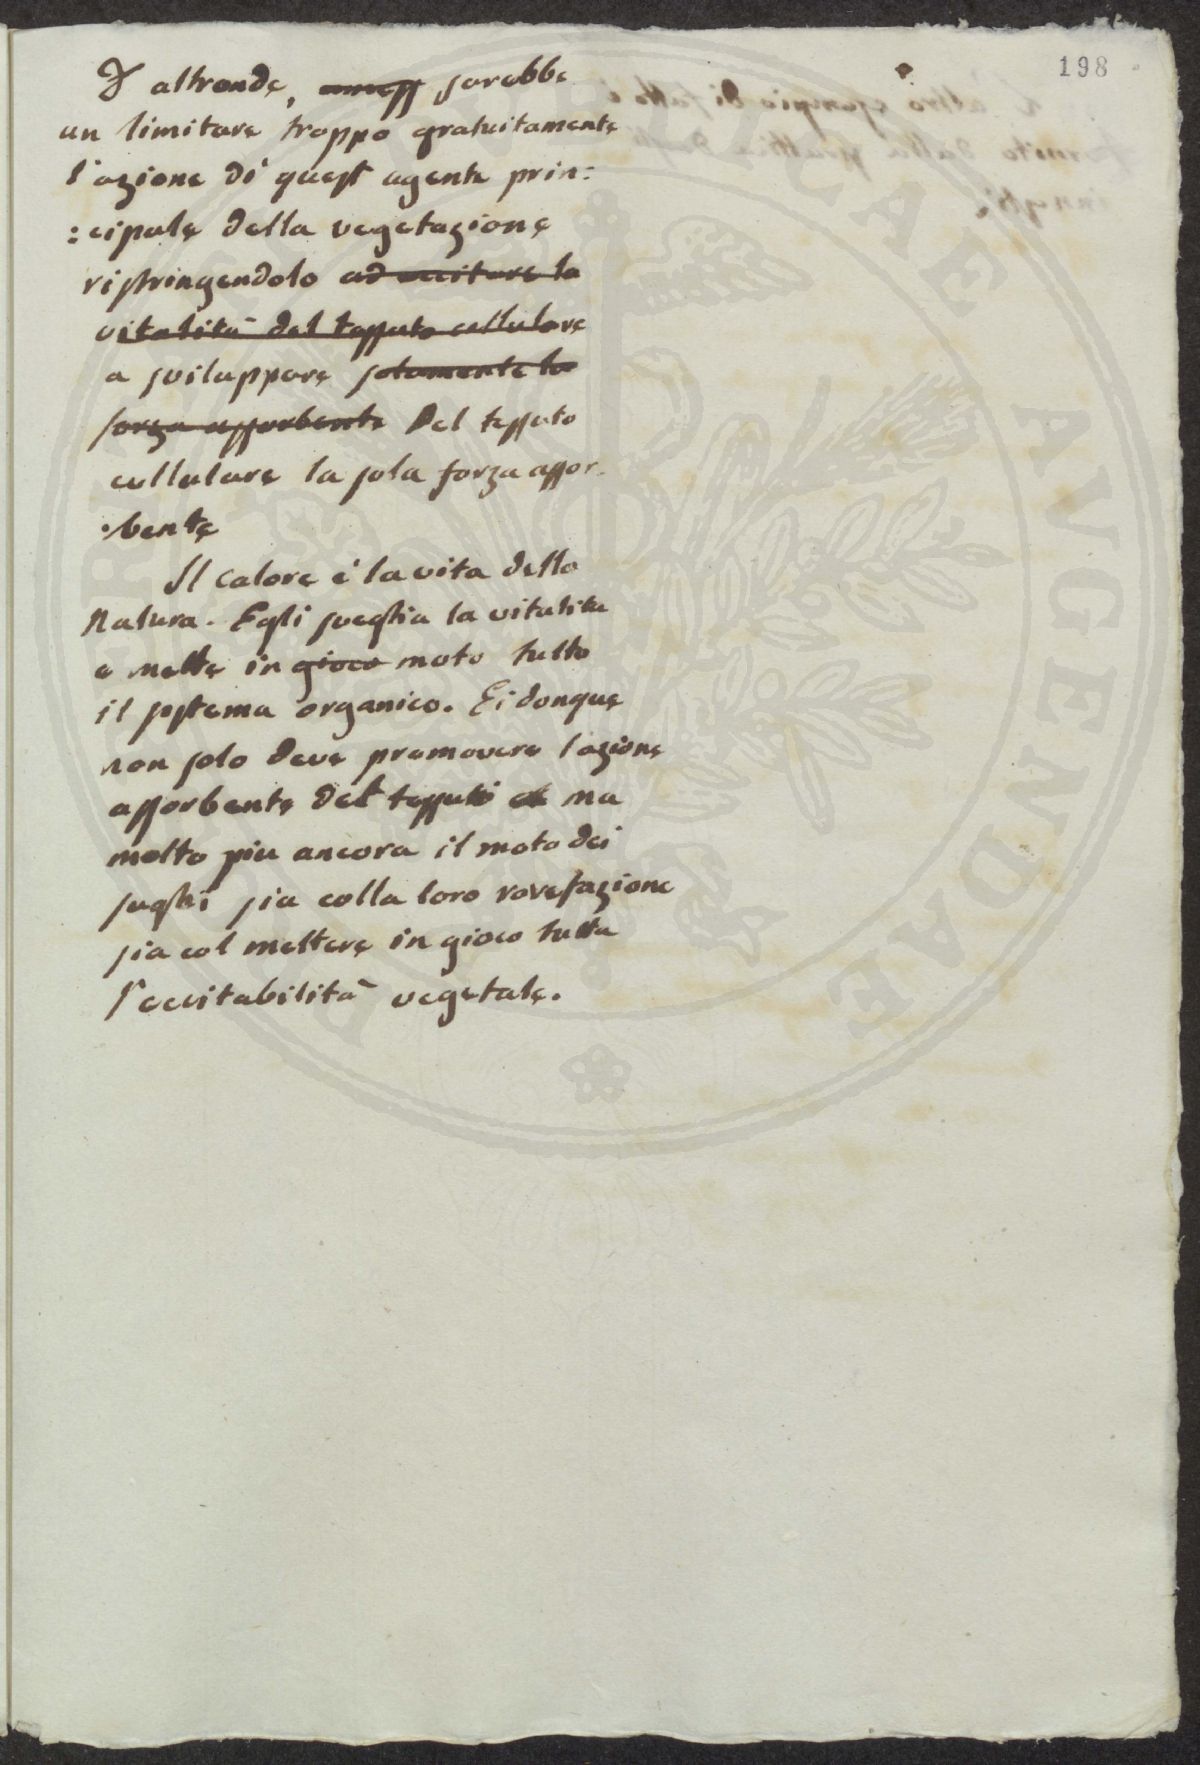 198
D'altronde, sarebbe
un limitare troppo gratuitamente
l'azione di quest agente prin:
:cipale della vegetazione
ristringendolo ad eccitare la
vitalità del tessuto cellulare
a sviluppare solamente la
forza assorbente del tessuto
cellulare la sola forza assor-
-bente
Il calore è la vita della
Natura. Egli sveglia la vitalita
e mette in gioco moto tutto
il sistema organico. Ei donque
non solo deve promovere l'azione
assorbente del tessuto ma
molto piu ancora il moto dei
sughi sia colla loro rarefazione
sia col mettere in gioco tutta
l'eccitabilità vegetale.